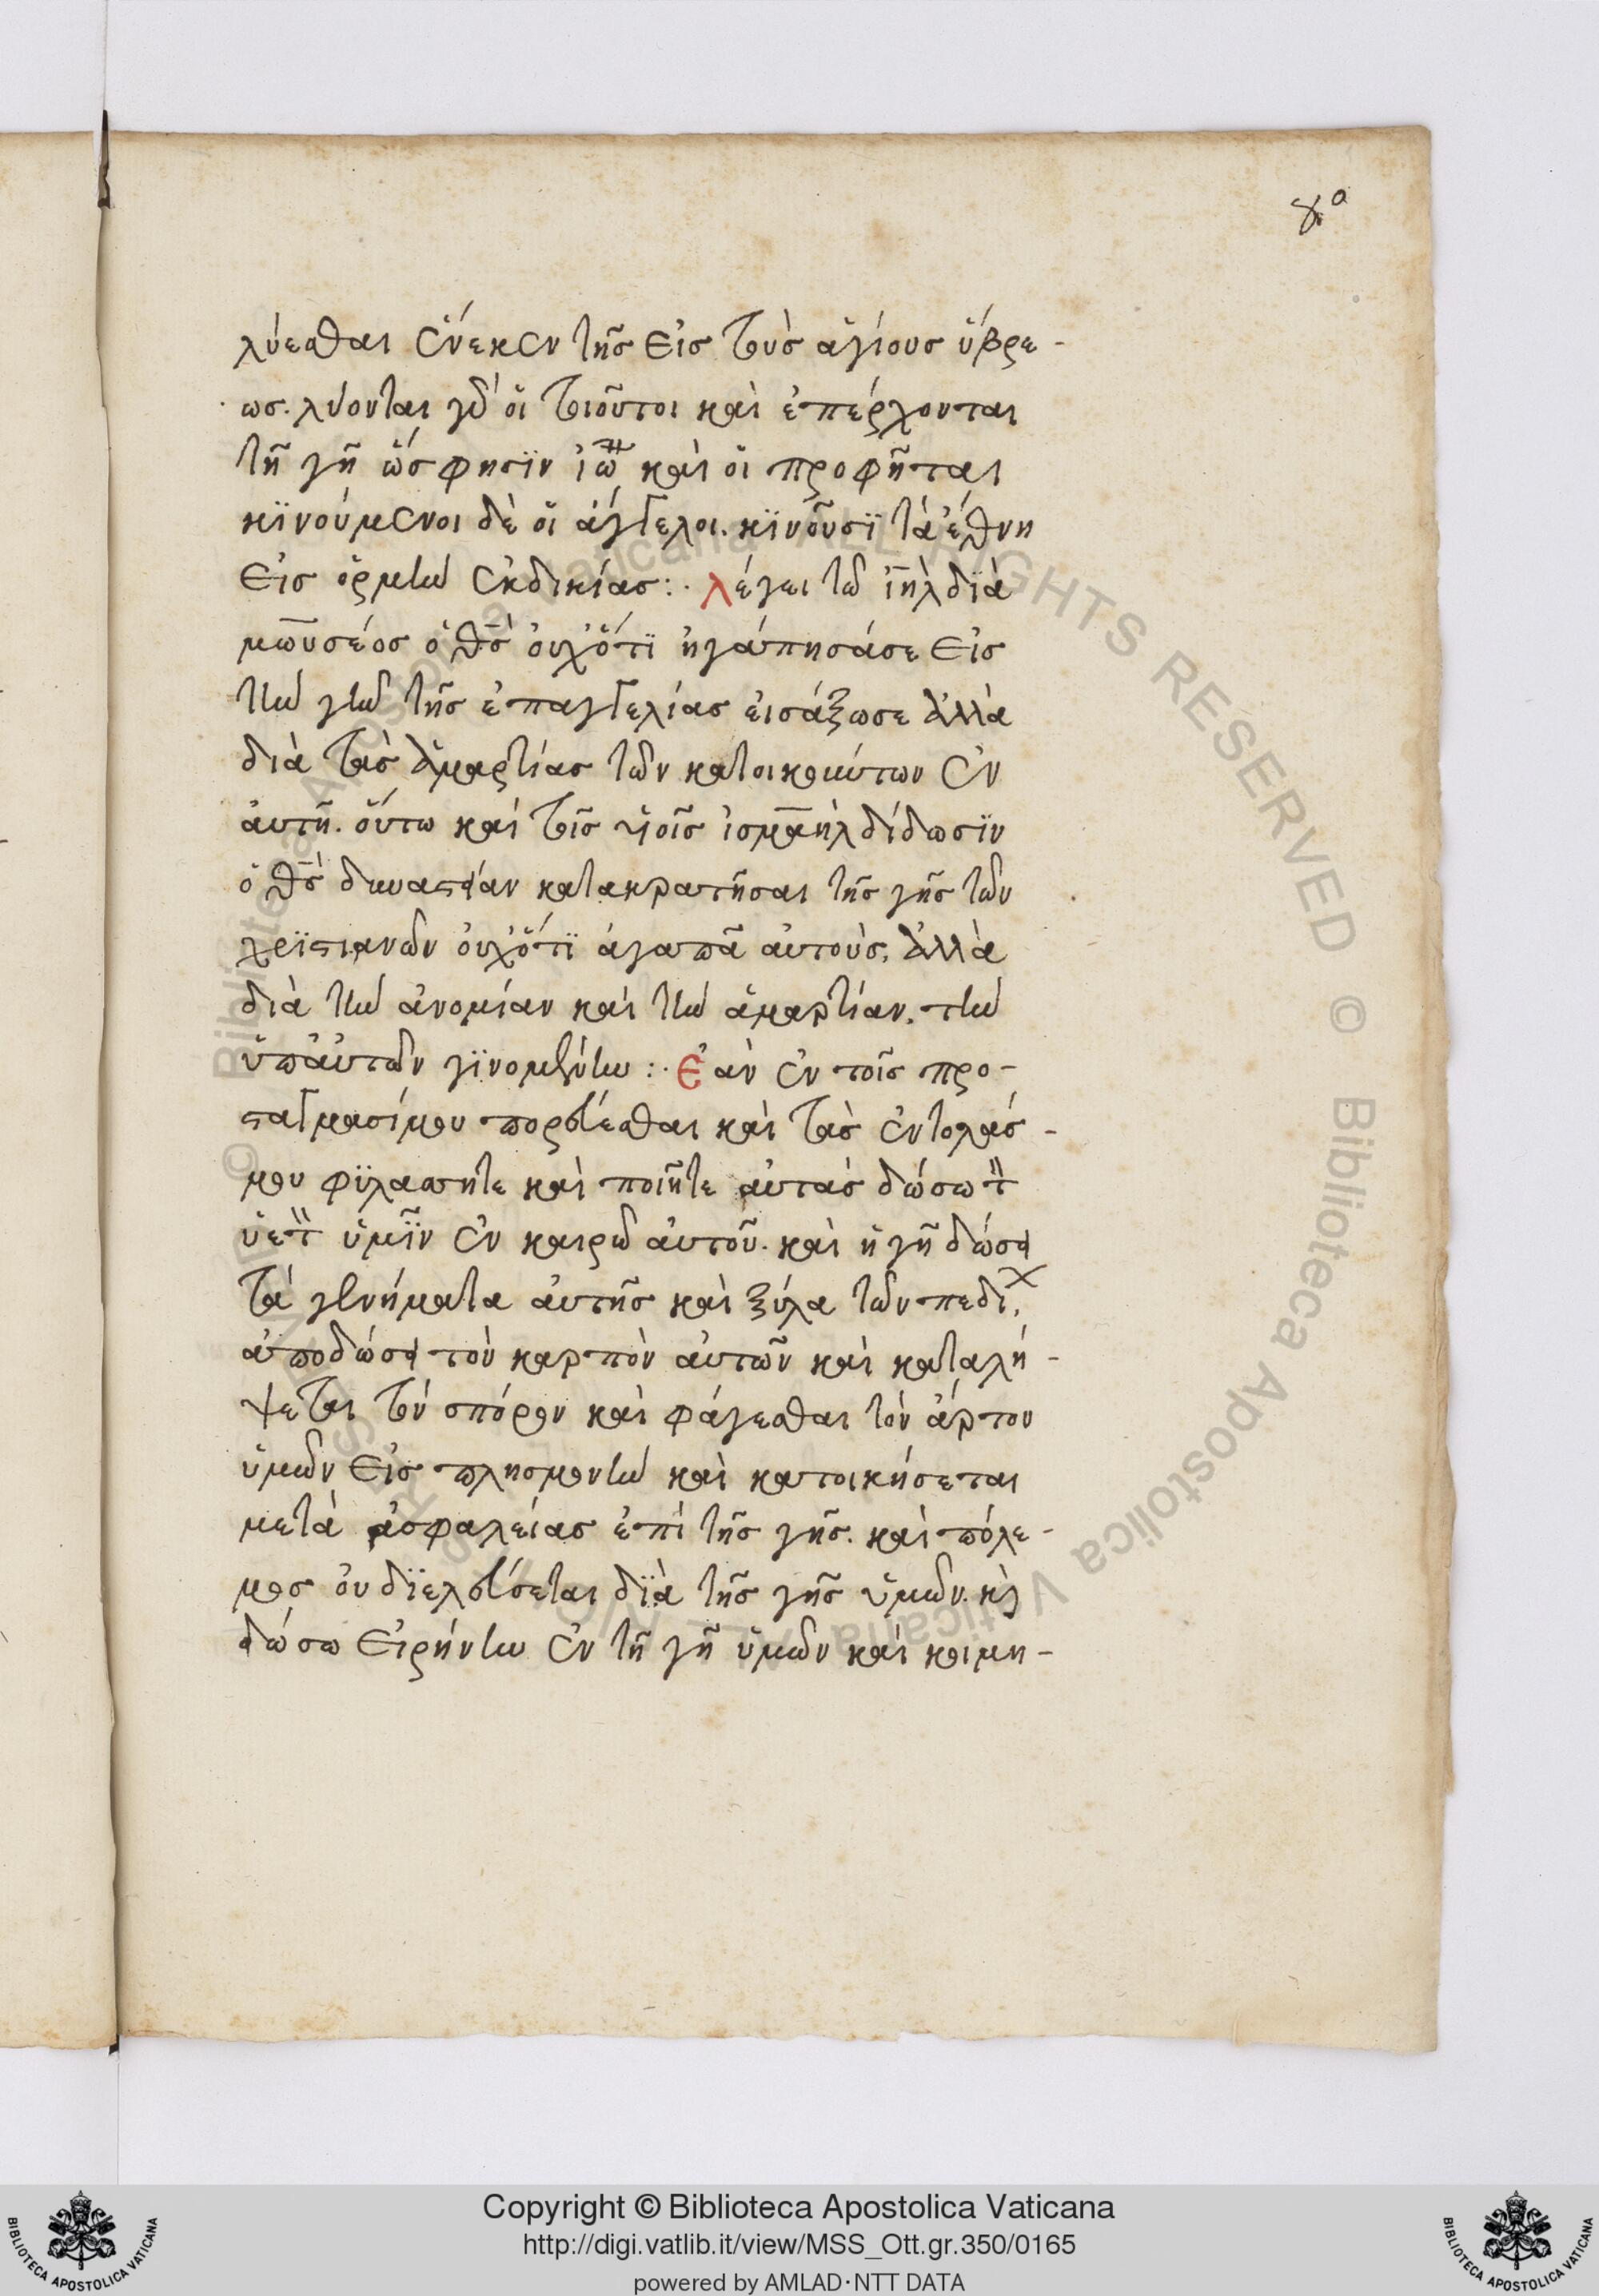 λύεσθαι ἕνεκεν τῆς εἰς τοὺς ἁγίους ὕβρε-
ως. λύονται γὰρ οἱ τοιοῦτοι καὶ ἐπέρχονται
τῆ γῆ ὥς φησϊν ἰω̅ καὶ οἱ προφῆται
κϊνούμενοι δὲ οἱ ἄγγελοι. κϊνοῦσϊ τὰ ἔθνη
εἰς ὁρμὴν ἐκδικίας :· λέγει τῶ ἰη̅λ δϊὰ
μω̅υσέος ὁ θ̅ς οὐχ ὅτϊ ἠγάπησά σε εἰς
τὴν γὴν τῆς ἐπαγγελίας εἰσάξω σε ἀλλὰ
διὰ τὰς ἁμαρτίας τῶν κατοικούντων ἐν
αὐτῆ. οὕτω καὶ τοῖς υἱοῖς ἰσμα̅ὴλ δίδωσϊν
ὁ θ̅ς δυναστείαν κατακρατῆσαι τῆς γῆς τῶν
χρϊστιανῶν οὐχ ὅτϊ ἀγαπᾶ αὐτοὺς. ἀλλὰ
διὰ τὴν ἀνομίαν καὶ τὴν ἁμαρτίαν. τὴν
ὑπ' αὐτῶν γϊνομένην :· Ἐὰν ἐν τοῖς προ-
στάγμασί μου πορεύεσθαι καὶ τὰς ἐντολάς -
μου φϋλάσσητε καὶ ποιῆτε αὐτὰς δώσω τὸν
ὑετὸν ὑμῖν ἐν καιρῶ αὐτοῦ. καὶ ἡ γῆ δώσει
τὰ γενήματα αὐτῆς καὶ ξύλα τῶν πεδί.
ἀποδώσει τὸν καρπὸν αὐτῶν καὶ καταλή-
ψεται τὸν σπόρον καὶ φάγεσθαι τὸν ἄρτον
ὑμῶν εἰς πλησμονὴν καὶ κατοικήσεται
μετὰ ἀσφαλείας ἐπὶ τῆς γῆς. καὶ πόλε-
μος οὐ δϊελεύσεται δϊὰ τῆς γῆς ὑμῶν. κ̀
δώσω εἰρήνην ἐν τῆ γῆ ὑμῶν καὶ κοιμη-
© Biblioteca Apostolica Vaticana ALL RIGHTS RESERVED © Biblioteca Apostolica Vaticana
Copyright © Biblioteca Apostolica Vaticana
http://digi.vatlib.it/view/MSS_Ott.gr.350/0165
powered by AMLAD·NTT DATA
BIBLIOTECA APOSTOLICA VATICANA
BIBLIOTECA APOSTOLICA VATICANA